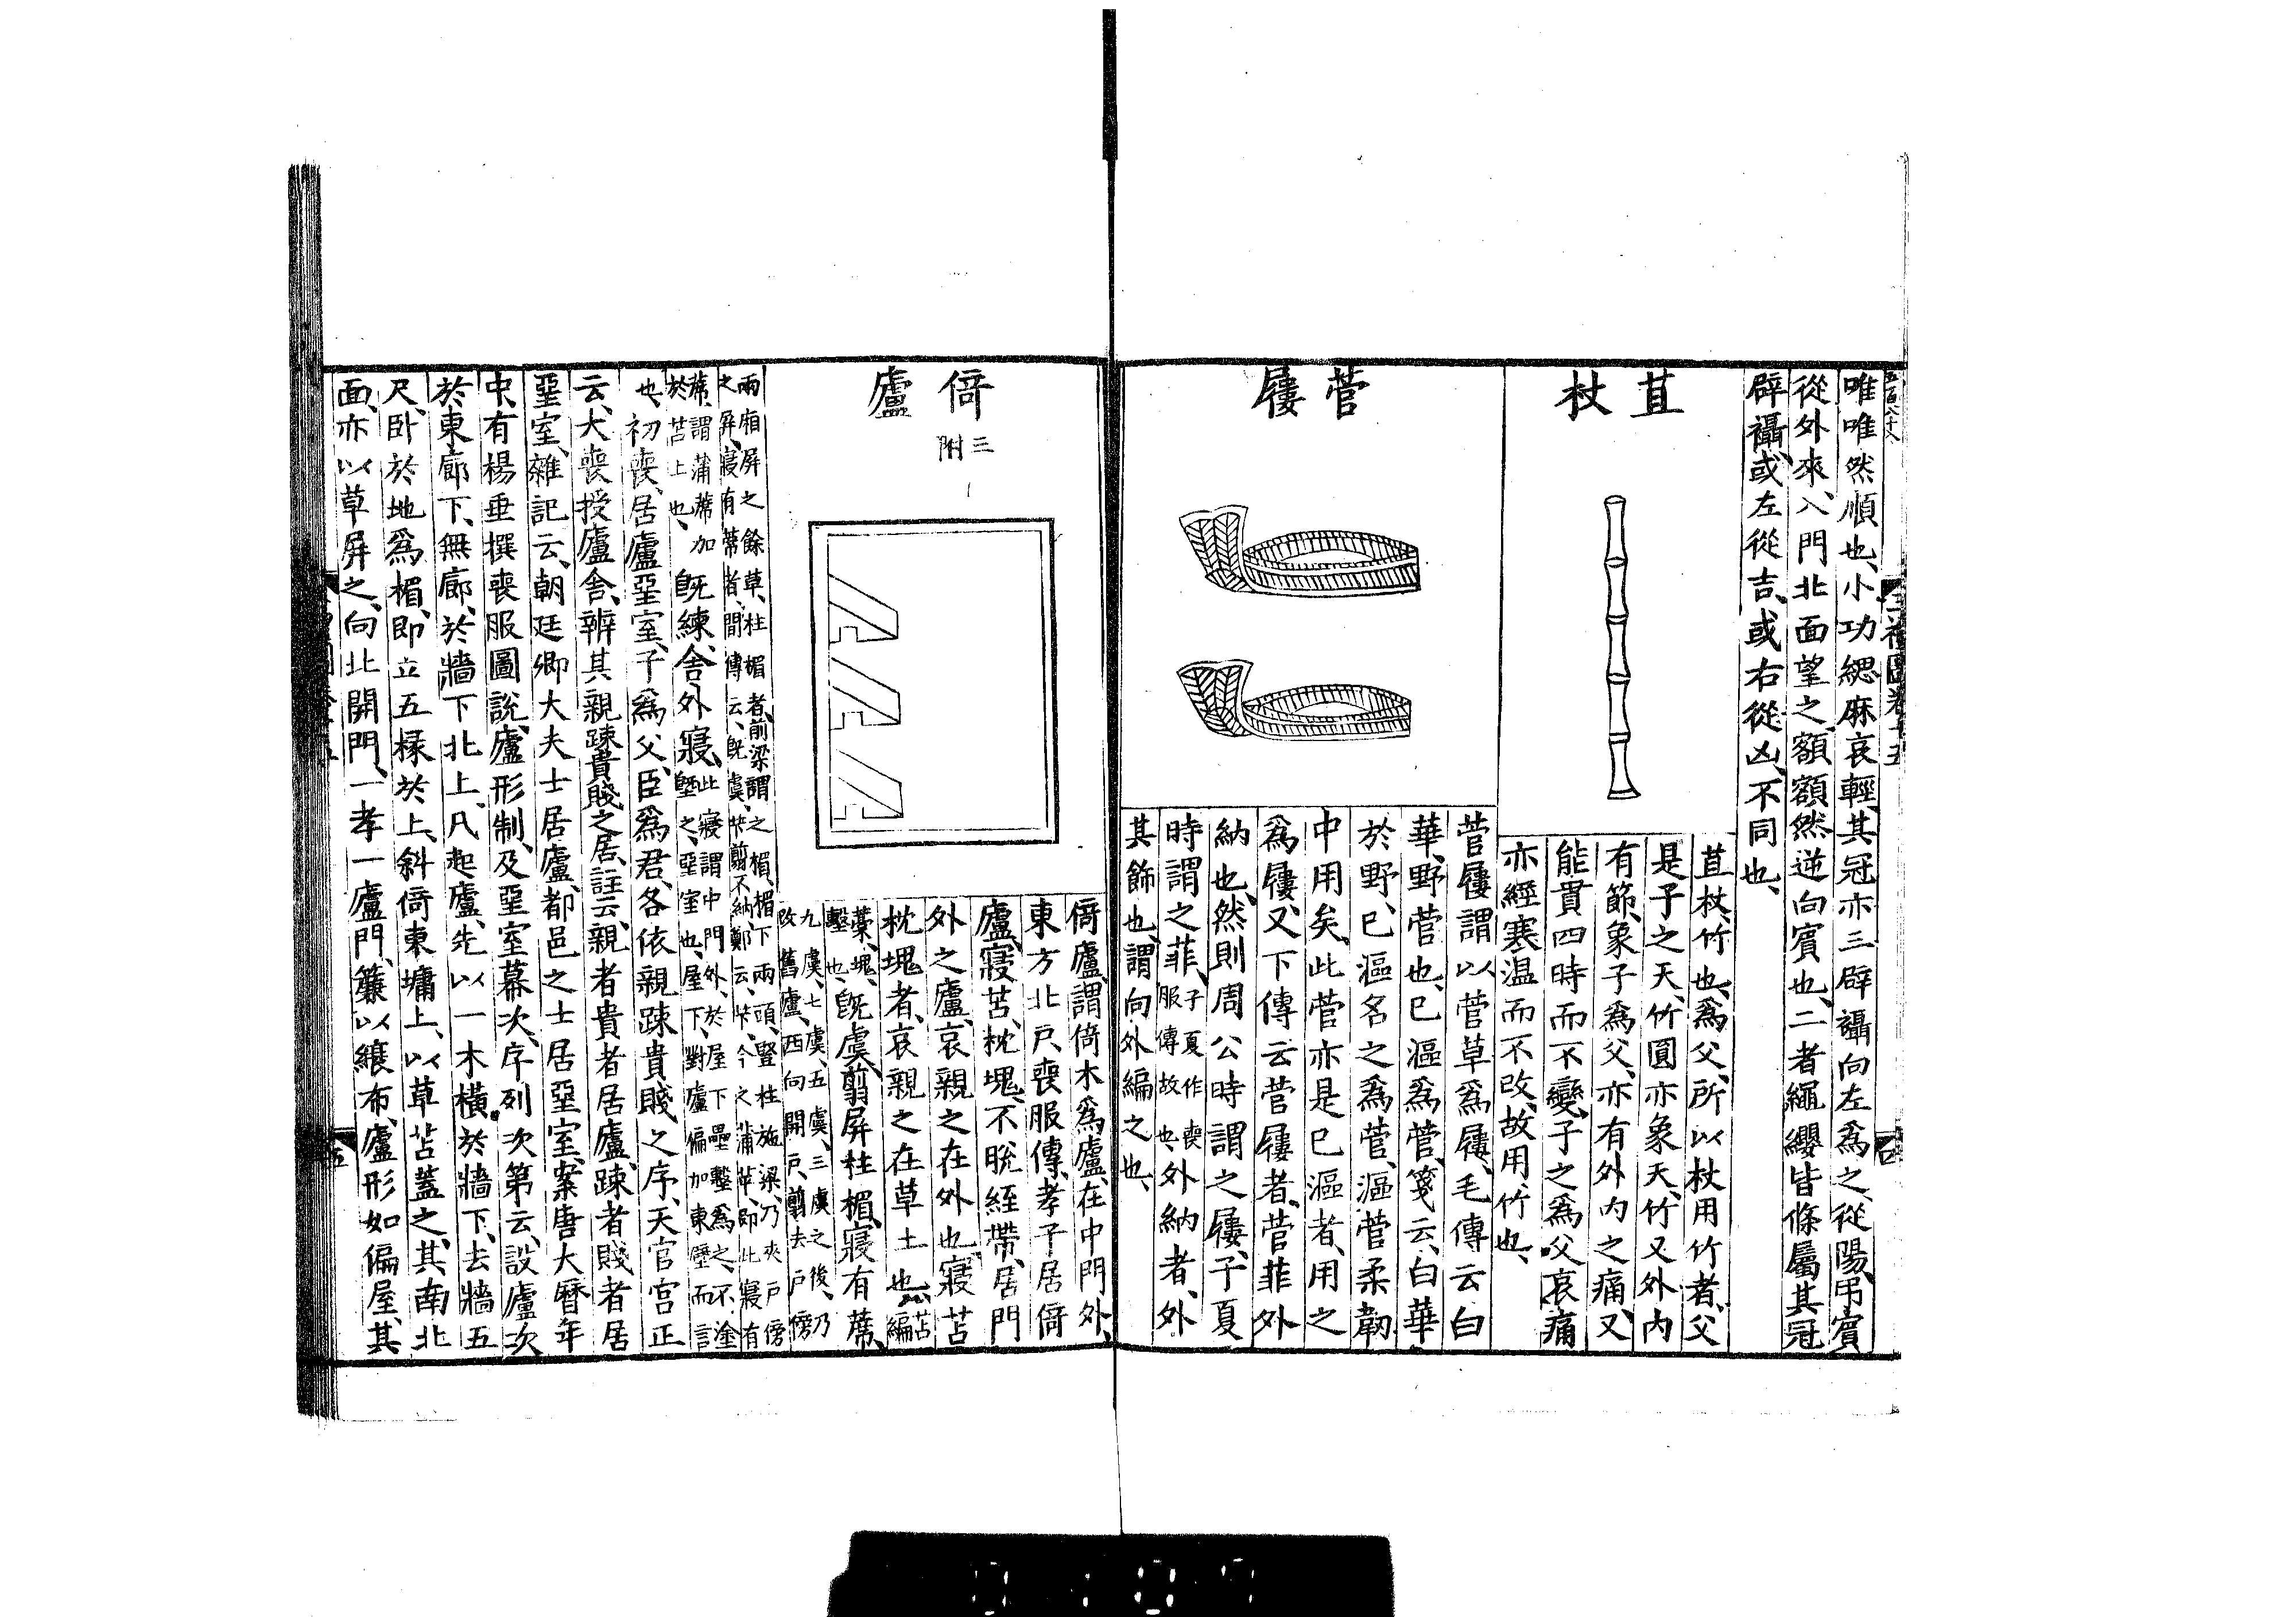 唯唯然順也、小功緦麻哀輕、其冠亦三辟襵向左爲之、從陽、吊賓
從外來、入門北面望之、額額然逆向賓也、二者繩纓皆條屬其冠
辟襵、或左從吉、或右從凶、不同也、
苴杖
苴杖、竹也、爲父、所以杖用竹者、父
是子之天、竹圓亦象天、竹又外内
有節、象子爲父、亦有外内之痛、又
能貫四時而不變、子之爲父哀痛
亦經寒温而不改、故用竹也、
菅屨
菅屨謂以菅草爲屨、毛傳云白
華、野菅也、已漚爲菅、箋云、白華
於野、已漚名之爲菅、漚菅柔韌
中用矣、此菅亦是已漚者、用之
爲屨、又下傳云菅屨者、菅菲外
納也、然則周公時謂之屨、子夏
時謂之菲、子夏作喪服傳故也、外納者、外
其飾也、謂向外編之也、
倚廬
三
附
倚廬、謂倚木爲廬、在中門外、
東方北戶、喪服傳、孝子居倚
廬、寢苫、枕塊、不脱絰帶、居門
外之廬、哀親之在外也、寢苫
枕塊者、哀親之在草土也、苫編
藁、塊、墼也、既虞、翦屏柱楣、寢有蓆、
九虞、七虞、五虞、三虞之後、乃
改舊廬、西向開戶、翦去戶傍
兩廂屏之餘草、柱楣者、前梁謂之楣、楣下兩頭、豎柱施梁、乃夾戶傍
之屏、寢有蓆者、間傳云、既虞、苄翦不納、鄭云、苄、今之蒲苹、即此寢有
蓆、謂蒲蓆加
於苫上也、
既練、舍外寢、
此寢謂中門外、於屋下壘墼爲之、不塗
塈之、堊室也、屋下、對廬偏加東壁而言
也、初喪、居廬堊室、子爲父、臣爲君、各依親踈貴賤之序、天官宫正
云、大喪授廬舍、辨其親踈貴賤之居、註云、親者貴者居廬、踈者賤者居
堊室、雜記云、朝廷卿大夫士居廬、都邑之士居堊室、案唐大曆年
中、有楊垂撰喪服圖說、廬形制、及堊室幕次、序列次第云、設廬次
於東廊下、無廊、於牆下北上、凡起廬、先以一木橫於牆下、去牆五
尺、卧於地爲楣、即立五椽於上、斜倚東墉上、以草苫蓋之、其南北
面、亦以草屏之、向北開門、一孝一廬門、簾以縗布、廬形如偏屋、其